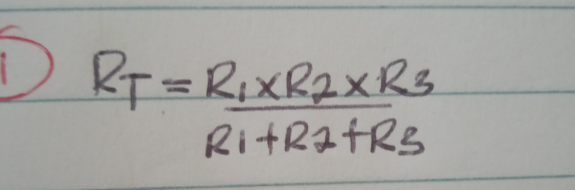 1) RT = R1xR2xR3
R1+R2+R3